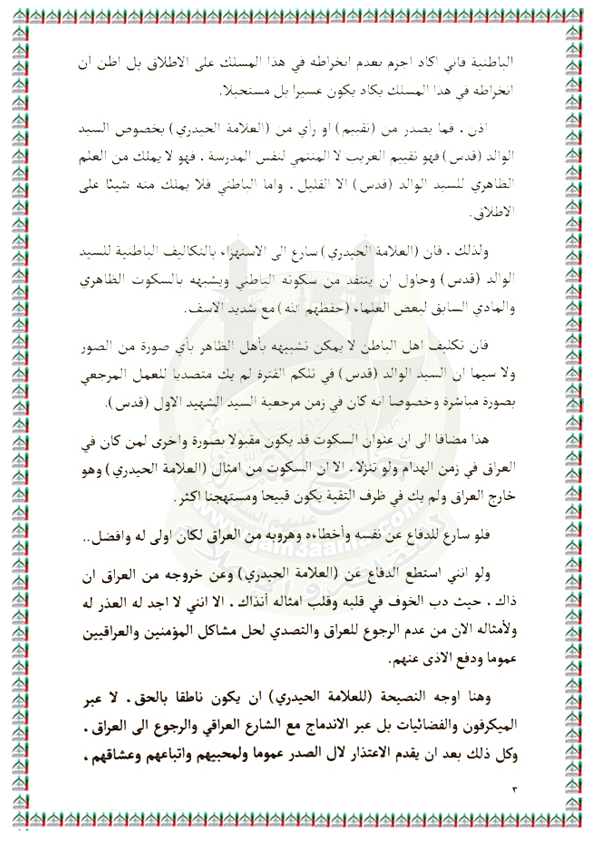 الباطنية فاني اكاد اجزم بعدم انخراطه في هذا المسلك على الاطلاق بل اظن ان
انخراطه في هذا المسلك يكاد يكون عسيرا بل مستحيلا.
اذن ، فما يصدر من (تقييم) او رأي من (العلامة الحيدري) بخصوص السيد
الوالد (قدس) فهو تقييم الغريب لا المنتمي لنفس المدرسة ، فهو لا يملك من العلم
الظاهري للسيد الوالد (قدس) الا القليل ، واما الباطني فلا يملك منه شيئا على
الاطلاق.
ولذلك ، فان (العلامة الحيدري) سارع الى الاستهزاء بالتكاليف الباطنية للسيد
الوالد (قدس) وحاول ان ينتقد من سكوته الباطني ويشبهه بالسكوت الظاهري
والمادي السابق لبعض العلماء (حفظهم الله) مع شديد الاسف.
فان تكليف اهل الباطن لا يمكن تشبيهه بأهل الظاهر بأي صورة من الصور
ولا سيما ان السيد الوالد (قدس) في تلكم الفترة لم يك متصديا للعمل المرجعي
بصورة مباشرة وخصوصا انه كان في زمن مرجعية السيد الشهيد الاول (قدس).
هذا مضافا الى ان عنوان السكوت قد يكون مقبولا بصورة واخرى لمن كان في
العراق في زمن الهدام ولو تنزلا ، الا ان السكوت من امثال (العلامة الحيدري) وهو
خارج العراق ولم يك في ظرف التقية يكون قبيحا ومستهجنا اكثر.
فلو سارع للدفاع عن نفسه وأخطاءه وهروبه من العراق لكان اولى له وافضل..
ولو انني استطع الدفاع عن (العلامة الحيدري) وعن خروجه من العراق ان
ذاك ، حيث دب الخوف في قلبه وقلب امثاله آنذاك ، الا انني لا اجد له العذر له
ولأمثاله الان من عدم الرجوع للعراق والتصدي لحل مشاكل المؤمنين والعراقيين
عموما ودفع الاذى عنهم.
وهنا اوجه النصيحة (للعلامة الحيدري) ان يكون ناطقا بالحق ، لا عبر
الميكرفون والفضائيات بل عبر الاندماج مع الشارع العراقي والرجوع الى العراق ،
وكل ذلك بعد ان يقدم الاعتذار لال الصدر عموما ولمحبيهم واتباعهم وعشاقهم ،
٣